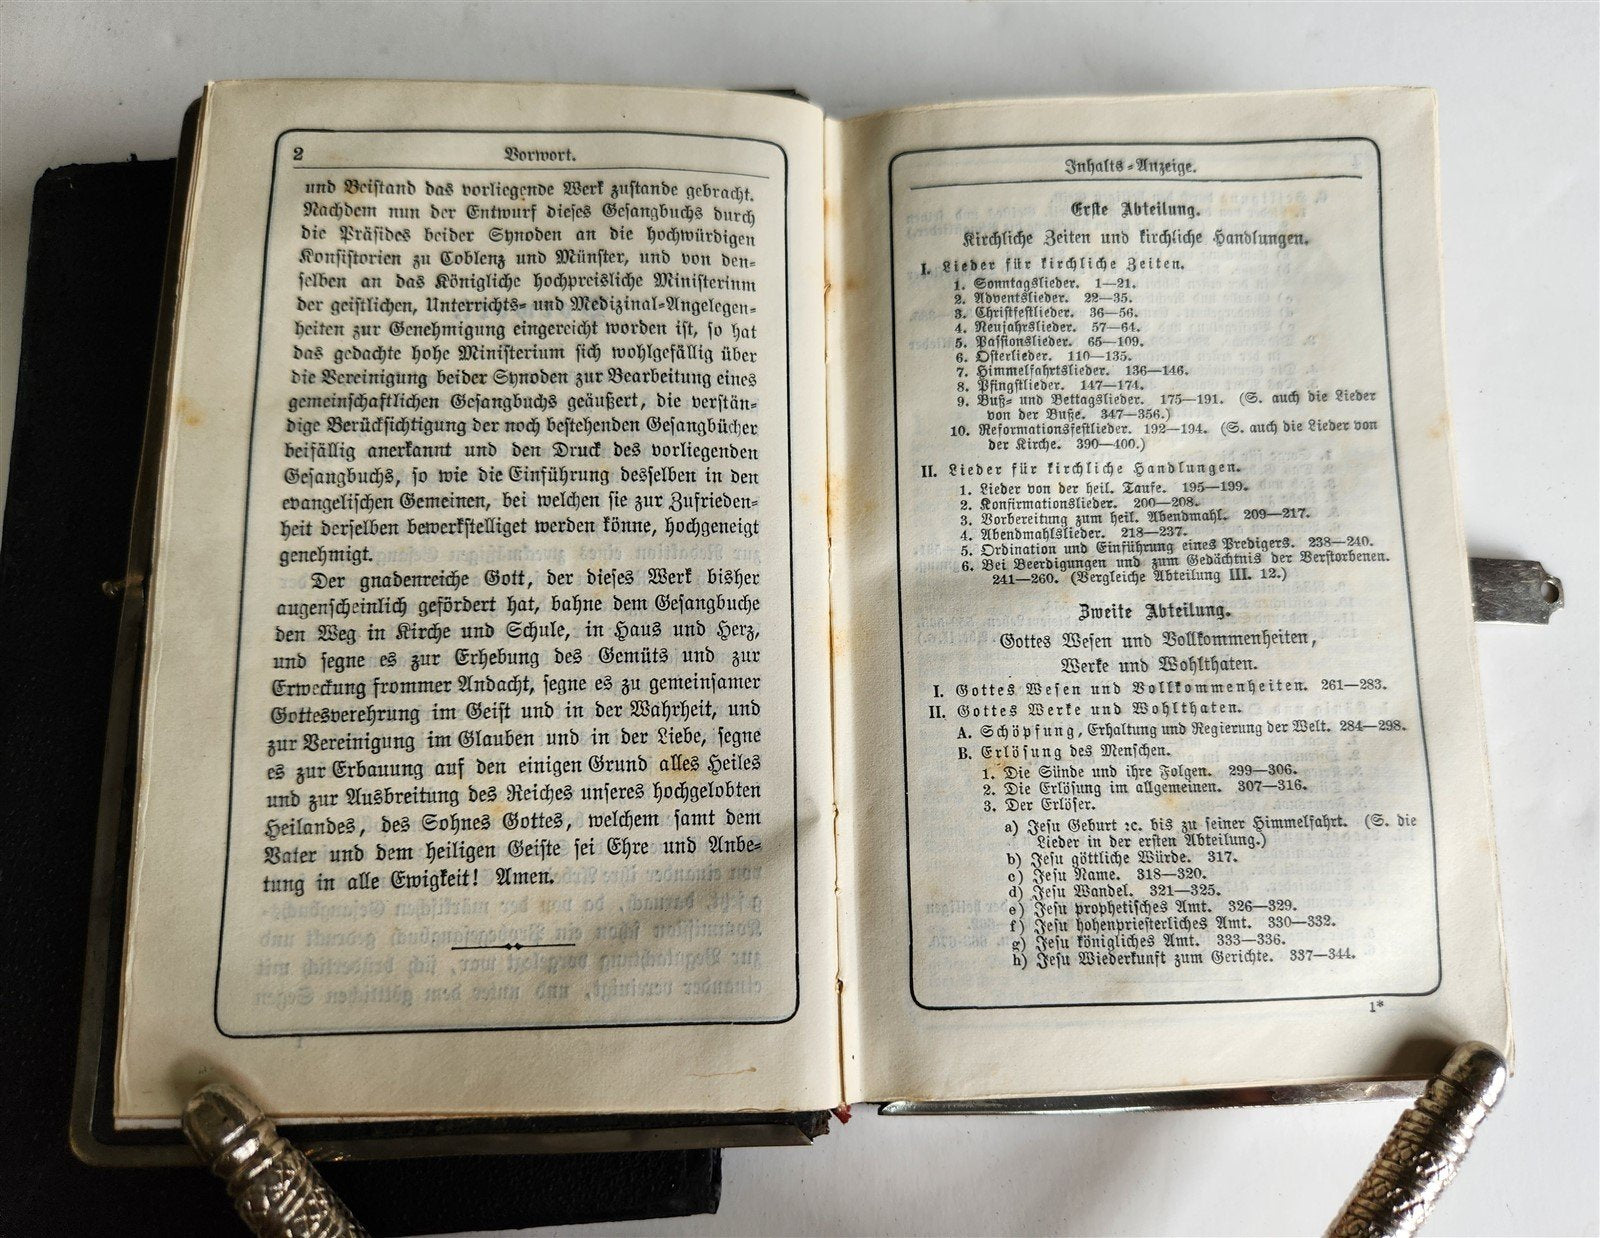 2
Vorwort.
und Beistand das vorliegende Werk zustande gebracht.
Nachdem nun der Entwurf dieses Gesangbuchs durch
die Präsides beider Synoden an die hochwürdigen
Konsistorien zu Coblenz und Münster, und von den-
selben an das Königliche hochpreisliche Ministerium
der geistlichen, Unterrichts- und Medizinal-Angelegen-
heiten zur Genehmigung eingereicht worden ist, so hat
das gedachte hohe Ministerium sich wohlgefällig über
die Vereinigung beider Synoden zur Bearbeitung eines
gemeinschaftlichen Gesangbuchs geäußert, die verstän-
dige Berücksichtigung der noch bestehenden Gesangbücher
beifällig anerkannt und den Druck des vorliegenden
Gesangbuchs, so wie die Einführung desselben in den
evangelischen Gemeinen, bei welchen sie zur Zufrieden-
heit derselben bewerkstelliget werden könne, hochgeneigt
genehmigt.
Der gnadenreiche Gott, der dieses Werk bisher
augenscheinlich gefördert hat, bahne dem Gesangbuche
den Weg in Kirche und Schule, in Haus und Herz,
und segne es zur Erhebung des Gemüts und zur
Erweckung frommer Andacht, segne es zu gemeinsamer
Gottesverehrung im Geist und in der Wahrheit, und
zur Vereinigung im Glauben und in der Liebe, segne
es zur Erbauung auf den einigen Grund alles Heiles
und zur Ausbreitung des Reiches unseres hochgelobten
Heilandes, des Sohnes Gottes, welchem samt dem
Vater und dem heiligen Geiste sei Ehre und Anbe-
tung in alle Ewigkeit! Amen.
Inhalts-Anzeige.
Erste Abteilung.
Kirchliche Zeiten und kirchliche Handlungen.
I. Lieder für kirchliche Zeiten.
1. Sonntagslieder. 1—21.
2. Adventslieder. 22—35.
3. Christfestlieder. 36—56.
4. Neujahrslieder. 57—64.
5. Passionslieder. 65—109.
6. Osterlieder. 110—135.
7. Himmelfahrtslieder. 136—146.
8. Pfingstlieder. 147—174.
9. Buß- und Bettagslieder. 175—191. (S. auch die Lieder
von der Buße. 347—356.)
10. Reformationsfestlieder. 192—194. (S. auch die Lieder von
der Kirche. 390—400.)
II. Lieder für kirchliche Handlungen.
1. Lieder von der heil. Taufe. 195—199.
2. Konfirmationslieder. 200—208.
3. Vorbereitung zum heil. Abendmahl. 209—217.
4. Abendmahlslieder. 218—237.
5. Ordination und Einführung eines Predigers. 238—240.
6. Bei Beerdigungen und zum Gedächtnis der Verstorbenen.
241—260. (Vergleiche Abteilung III. 12.)
Zweite Abteilung.
Gottes Wesen und Vollkommenheiten,
Werke und Wohlthaten.
I. Gottes Wesen und Vollkommenheiten. 261—283.
II. Gottes Werke und Wohlthaten.
A. Schöpfung, Erhaltung und Regierung der Welt. 284—298.
B. Erlösung des Menschen.
1. Die Sünde und ihre Folgen. 299—306.
2. Die Erlösung im allgemeinen. 307—316.
3. Der Erlöser.
a) Jesu Geburt ꝛc. bis zu seiner Himmelfahrt. (S. die
Lieder in der ersten Abteilung.)
b) Jesu göttliche Würde. 317.
c) Jesu Name. 318—320.
d) Jesu Wandel. 321—325.
e) Jesu prophetisches Amt. 326—329.
f) Jesu hohenpriesterliches Amt. 330—332.
g) Jesu königliches Amt. 333—336.
h) Jesu Wiederkunft zum Gerichte. 337—344.
1*